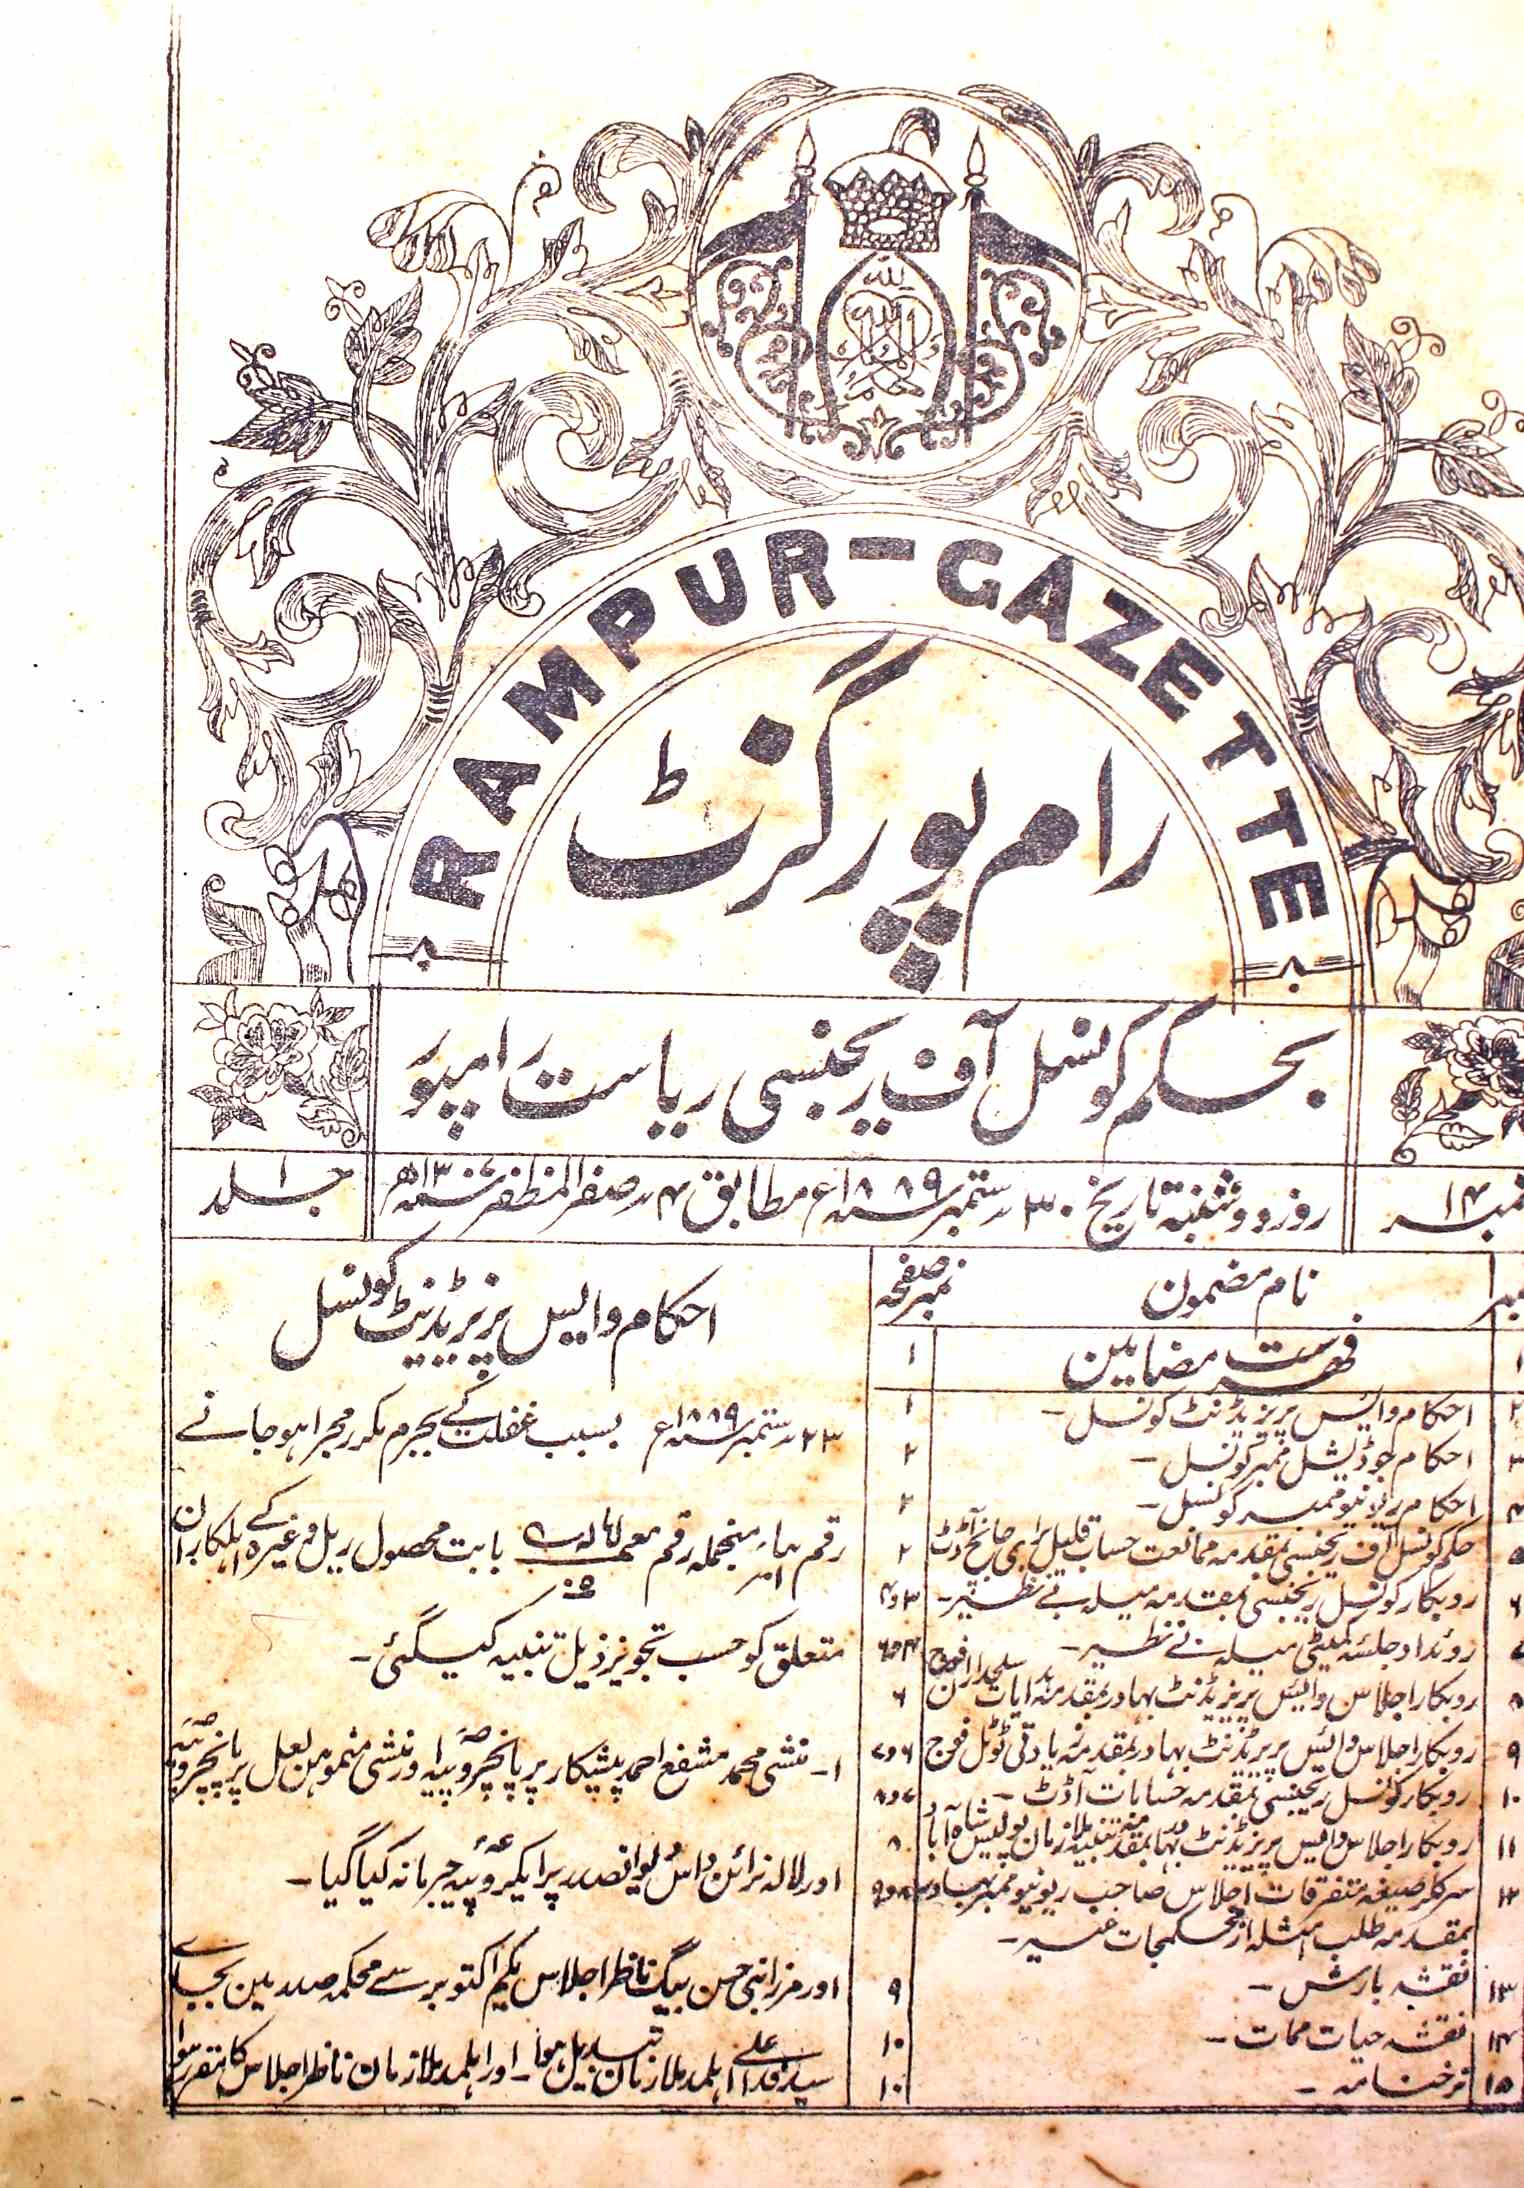 RAMPUR-GAZETTE
رام پور گزٹ
بحکم کونسل آف ریجنسی ریاست رامپور
نمبر ۱۴
روز دوشنبہ تاریخ ۳۰ ستمبر ۱۸۸۹ء مطابق ۴ صفر المظفر ۱۳۰۷ھ
جلد ۱
نمبر نام مضمون نمبر صفحہ
۱ فہرست مضامین ۱
۲ احکام وایس پریزیڈنٹ کونسل۔ ۱
۳ احکام جوڈیشل ممبر کونسل۔ ۲
۴ احکام ریونیو ممبر کونسل۔ ۲
۵ حکم کونسل آف ریجنسی بمقدمہ ممانعت حساب قلیل برای جانچ آڈٹ ۲
۶ روبکار کونسل ریجنسی بمقدمہ میلہ بے نظیر۔ ۳و۴
۷ روئداد جلسہ کمیٹی میلہ بے نظیر۔
۸ روبکار اجلاس وایس پریزیڈنٹ بہادر بمقدمہ ہدایات سلحداران فوج ۶
۹ روبکار اجلاس وایس پریزیڈنٹ بہادر بمقدمہ زیادتی ٹوٹل فوج ۶و۷
۱۰ روبکار کونسل ریجنسی بمقدمہ حسابات آڈٹ۔ ۷و۸
۱۱ روبکار اجلاس وایس پریزیڈنٹ بہادر بمقدمہ تنبیہ ملازمان پولیس شاہ آباد ۸
۱۲ سرکلر صیغہ متفرقات اجلاس صاحب ریونیو ممبر بہادر ۸و۹
بمقدمہ طلب امثلہ از محکمجات غیر۔
۱۳ نقشہ بارش۔ ۹
۱۴ نقشہ حیات ممات۔ ۱۰
۱۵ نرخنامہ۔ ۱۰
احکام وایس پریزیڈنٹ کونسل
۲۳ ستمبر ۱۸۸۹ء بسبب غفلت کے بجرم مکرر مجرا ہو جانے
رقم منجملہ رقم بابت محصول ریل وغیرہ کے اہلکاران
متعلق کو حسب تجویز ذیل تنبیہ کیگئی۔
۱۔ منشی محمد مشفع احمد پیشکار پر پانچروپیہ اور منشی منموہن لعل پر پانچروپیہ
اور لالہ نرائن داس پر ایکروپیہ جرمانہ کیا گیا۔
اور مرزا نبی حسن بیگ ناظر اجلاس یکم اکتوبر سے محکمہ صدر مین بجاے
سید فدا علی اہلمد ملازمان تبدیل ہوا۔ اور اہلمد ملازمان ناظر اجلاس کا مقرر ہوا